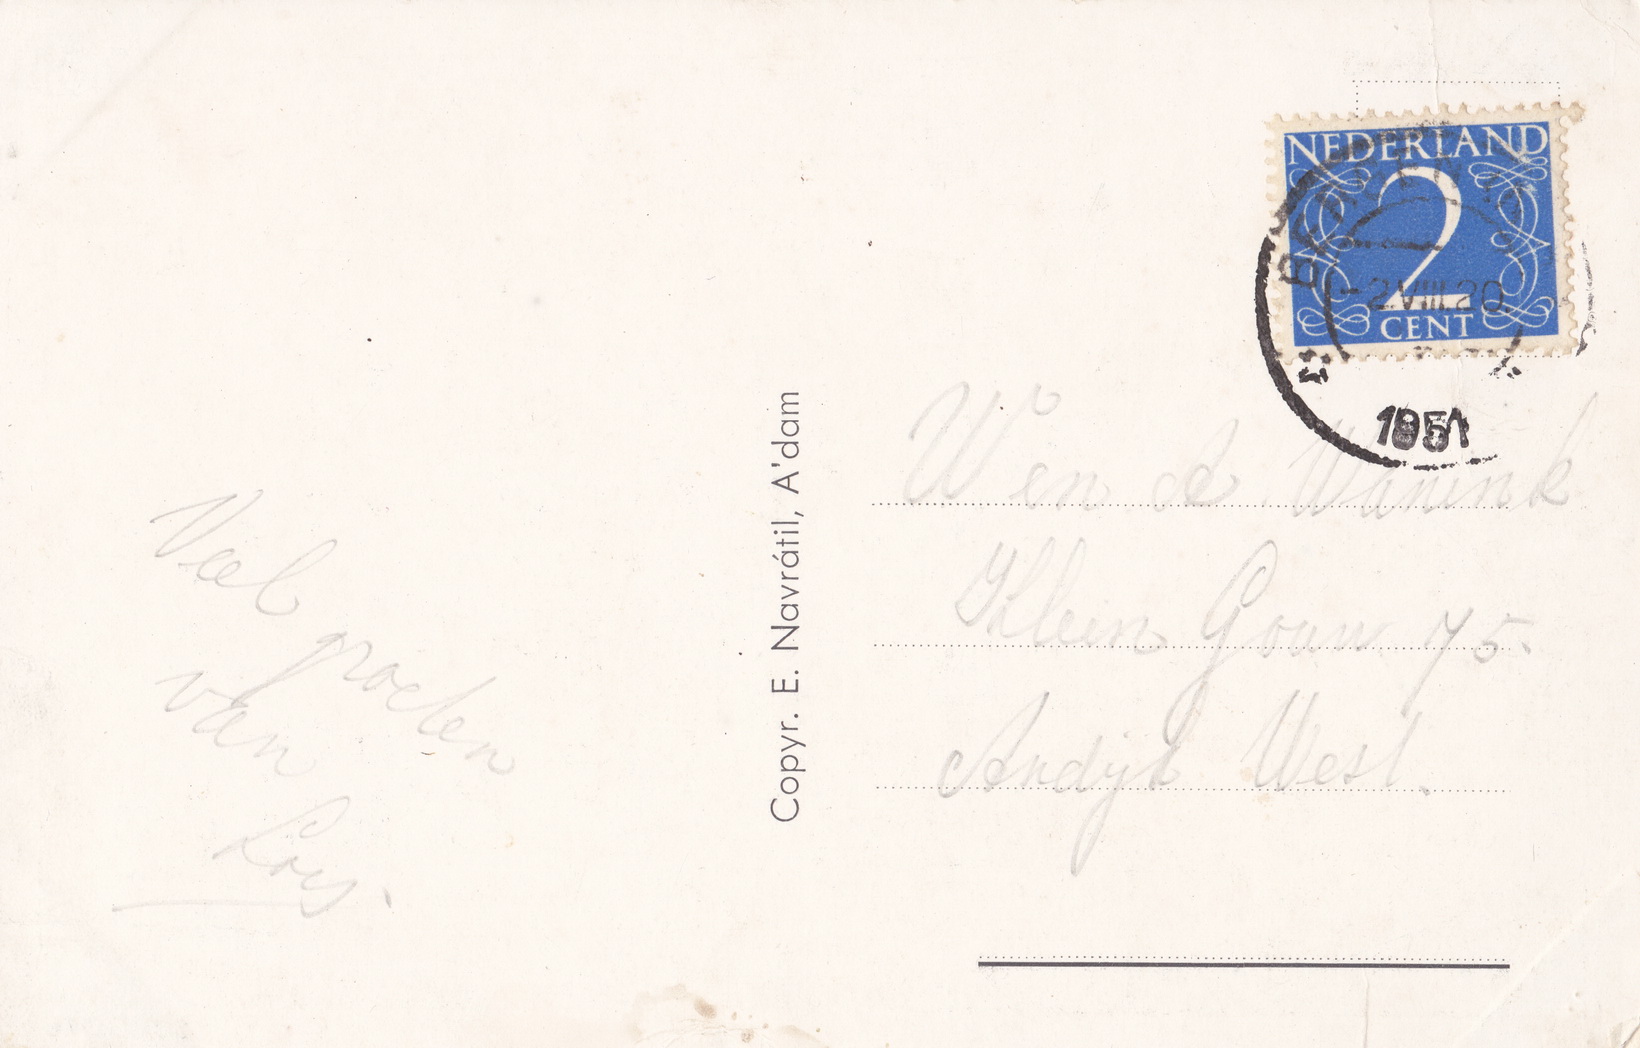 NEDERLAND
2
CENT
BERGEN
-2.VIII.20
1951
W en A Wanink
Klein Gouw 75.
Andijk West.
Copyr. E. Navrátil, A'dam
Veel
groeten
van